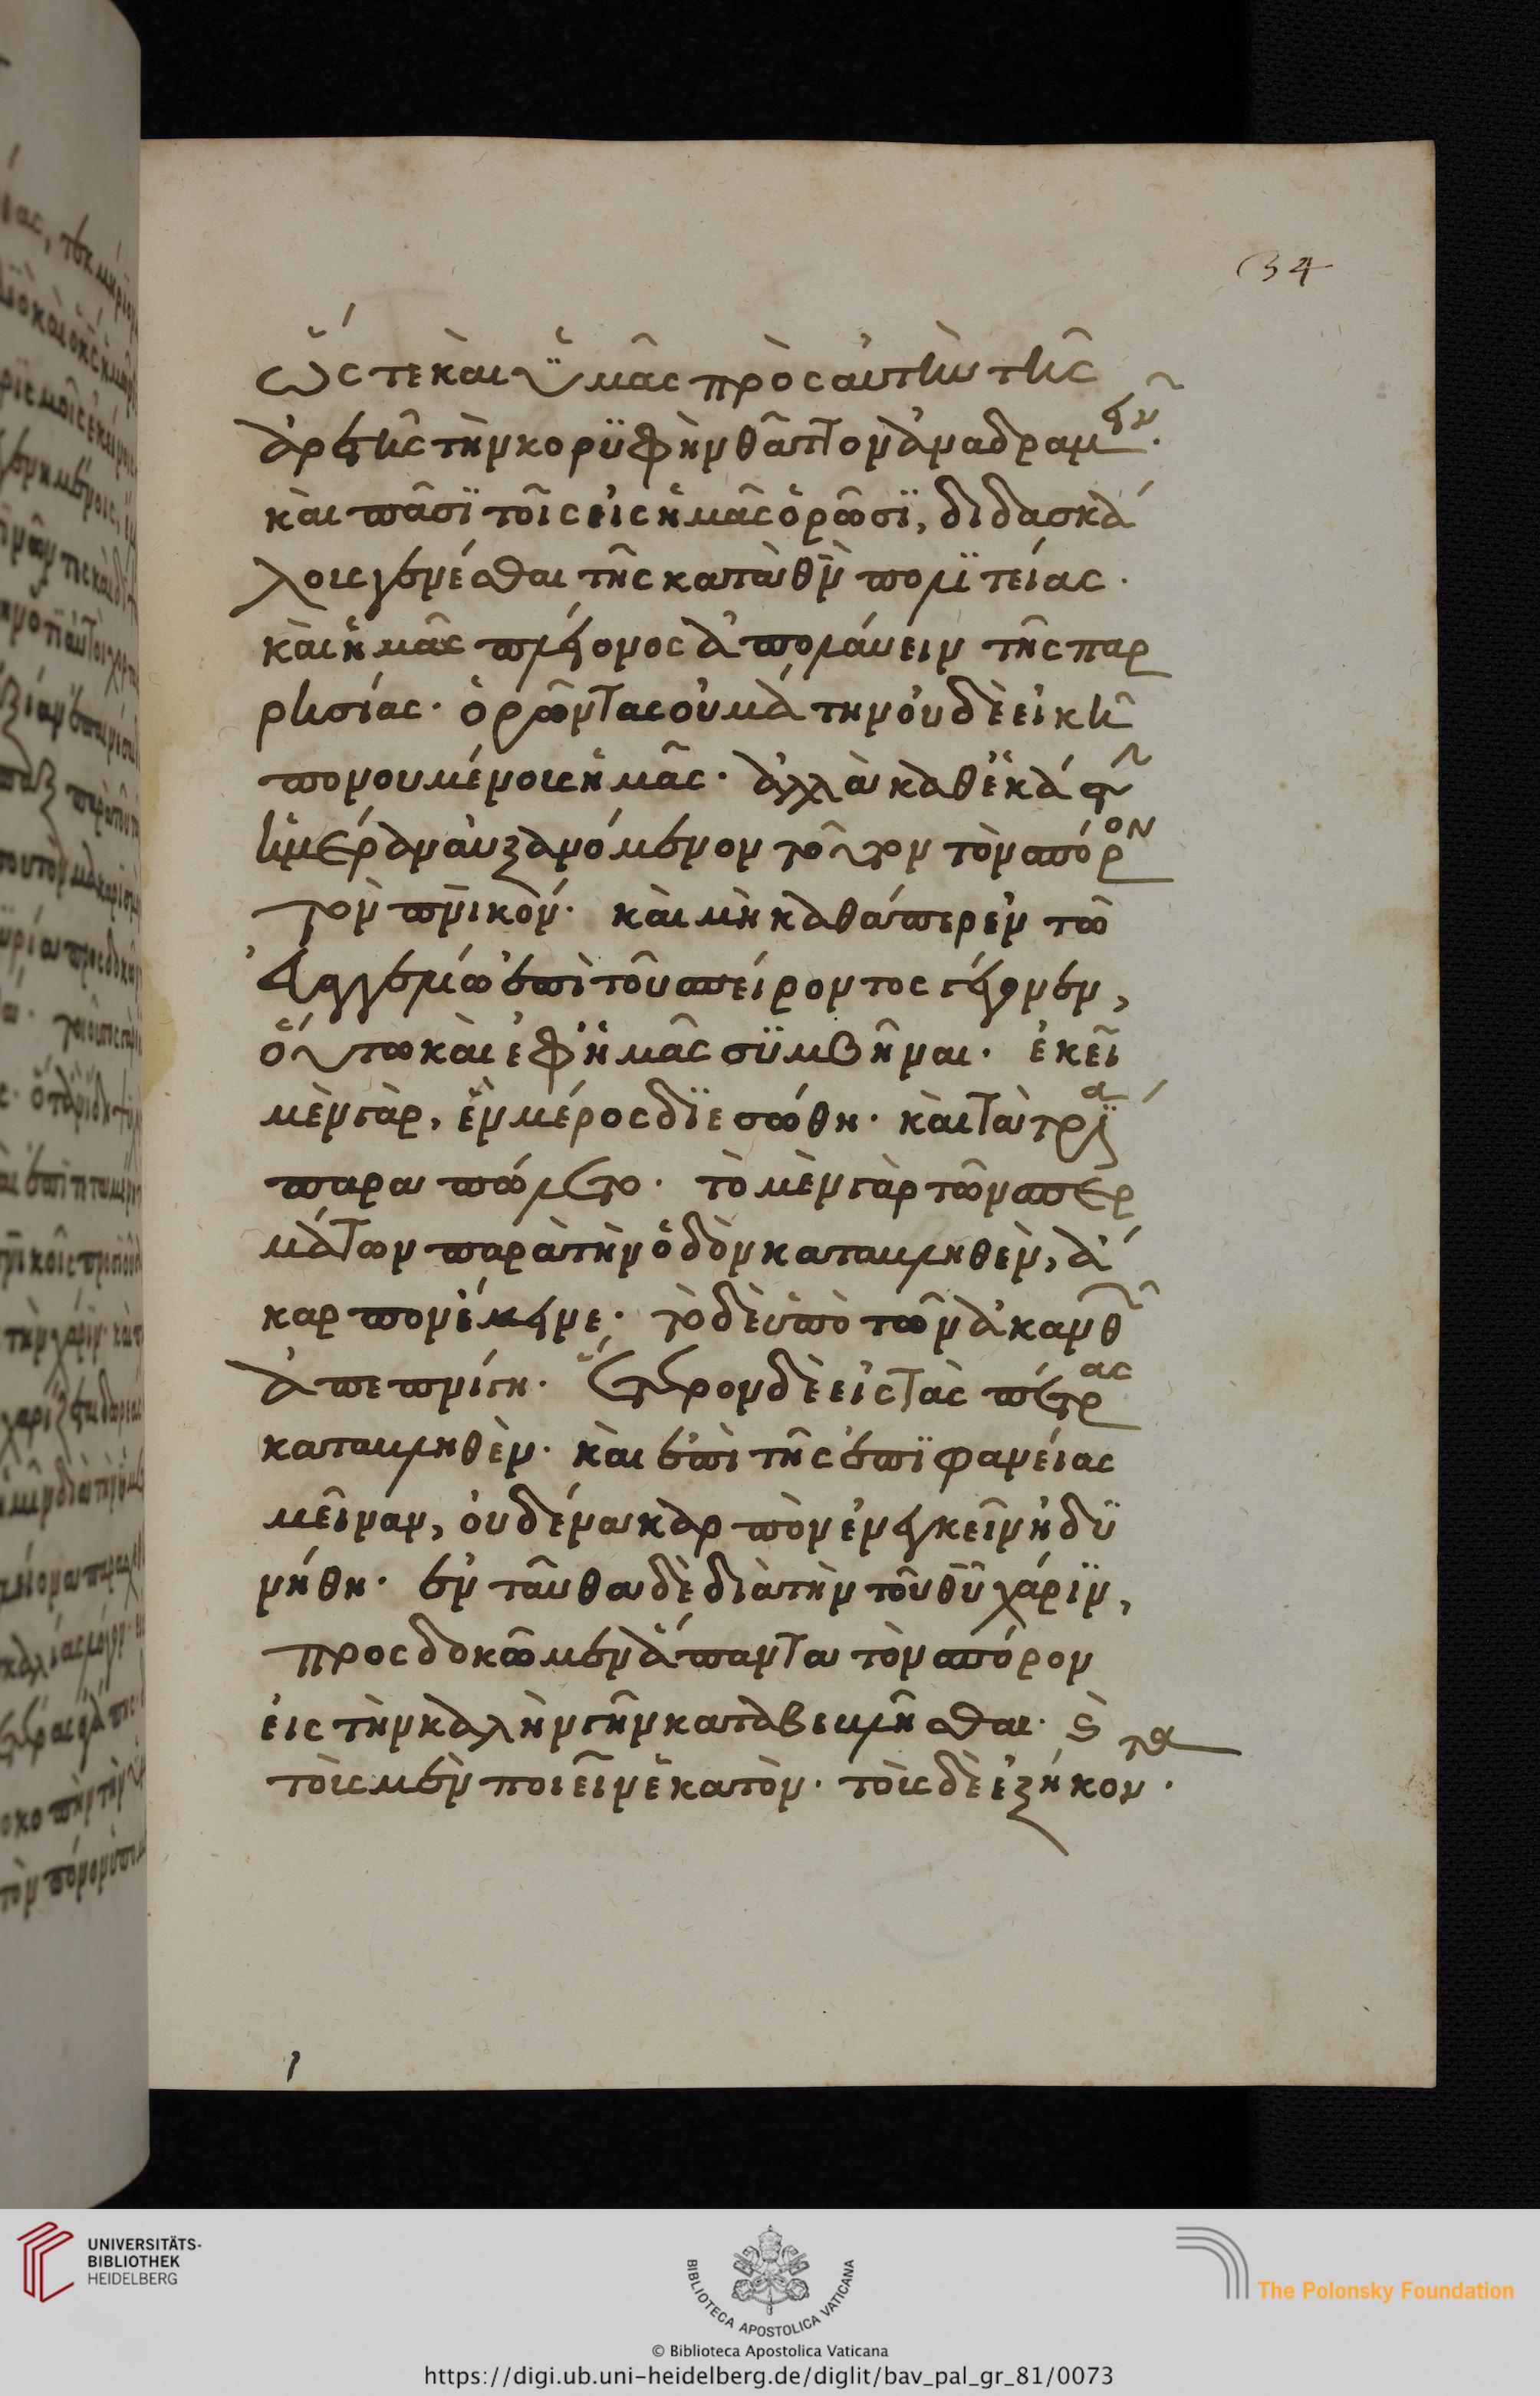 34
ὥς τε καὶ ὑμᾶς πρὸς αὐτὴν τῆς
ἀρετῆς τὴν κορυφὴν θᾶττον ἀναδραμεῖν.
καὶ πᾶσι τοῖς εἰς ἡμᾶς ὁρῶσι, διδασκά
λοις γενέσθαι τῆς κατὰ θν πολιτείας.
καὶ ἡμᾶς πλέονος ἀπολαύειν τῆς παρ
ρησίας. ὁρῶντας οὐ μάτην οὐδὲ εἰκῆ
πονουμένοις ἡμᾶς. ἀλλὰ καθ' ἑκάστην
ἡμέραν αὐξανόμενον τοῦτον τὸν σπόρον
τὸν πνικόν. καὶ μὴ καθάπερ ἐν τῶ
εὐαγγελίω ἐπὶ τοῦ σπείροντος γέγονεν,
οὕτω καὶ ἐφ' ἡμᾶς συμβῆναι. ἐκεῖ
μὲν γὰρ, ἓν μέρος διεσώθη. καὶ τὰ τρία
παραπώλετο. τὸ μὲν γὰρ τῶν σπερ
μάτων παρὰ τὴν ὁδὸν καταβληθὲν, ἄ
καρπον ἔμεινε. τὸ δὲ ὑπὸ τῶν ἀκανθῶν
ἀπεπνίγη. ἕτερον δὲ εἰς τὰς πέτρας
καταβληθὲν. καὶ ἐπὶ τῆς ἐπιφανείας
μεῖναν, οὐδένα καρπὸν ἐνεγκεῖν ἠδυ
νήθη. ἐνταῦθα δὲ διὰ τὴν τοῦ θυ χάριν,
προσδοκῶμεν ἅπαντα τὸν σπόρον
εἰς τὴν καλὴν γῆν καταβεβλῆσθαι. καὶ
τοῖς μὲν ποιεῖν ἑκατὸν. τοῖς δὲ ἑξήκοντα.
UNIVERSITÄTS-
BIBLIOTHEK
HEIDELBERG
BIBLIOTECA APOSTOLICA VATICANA
The Polonsky Foundation
© Biblioteca Apostolica Vaticana
https://digi.ub.uni-heidelberg.de/diglit/bav_pal_gr_81/0073